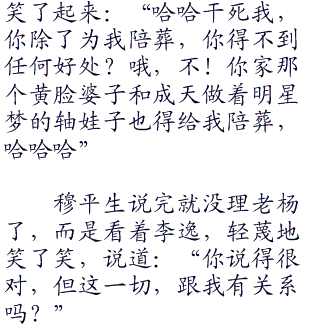 笑了起来：“哈哈干死我，
你除了为我陪葬，你得不到
任何好处？哦，不！你家那
个黄脸婆子和成天做着明星
梦的轴娃子也得给我陪葬，
哈哈哈”
穆平生说完就没理老杨
了，而是看着李逸，轻蔑地
笑了笑，说道：“你说得很
对，但这一切，跟我有关系
吗？”